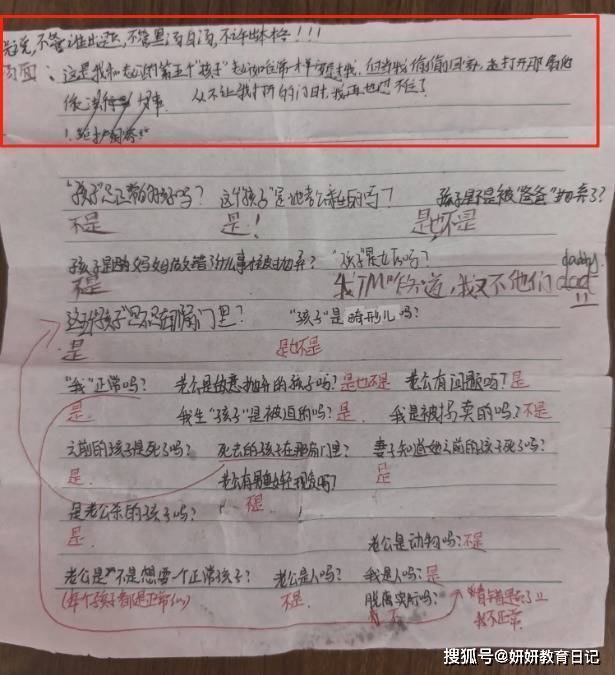 首先，不管谁出题，不管黑汤白汤，不许出格！！！
汤面：这是我和赵沟的第五个"孩子" 但当我偷偷回家，去打开那扇他
从不让我打开的门时，我再也忍不住了
"孩子"是正常的孩子吗？ 这个"孩子"是她老公亲生的吗？ 孩子是不是被"爸爸"抛弃了？
不是 是！ 是也不是
孩子是因为妈妈做错了什么事才被抛弃？ "孩子"是女人吗？
不是 我TM咋知道，我又不他们daddy
dad
这个"孩子"是不是在那扇门里？ "孩子"是畸形儿吗？
是 是也不是
"我"正常吗？ 老公是故意抛弃的孩子吗？是也不是 老公有问题吗？是
是 我生"孩子"是被迫的吗？是 我是被拐卖的吗？不是
之前的孩子是死了吗？ 死去的孩子在那扇门里？ 妻子知道她之前的孩子死了吗？
是 老公有重男轻女现象吗？ 是
是老公杀的孩子吗？ 不是
是
老公是动物吗？不是
老公是不是想要一个正常孩子？ 老公是人吗？ 我是人吗？是
(每个孩子都是正常的) 不是 脱离实际吗？
我不正常
搜狐号@妍妍教育日记